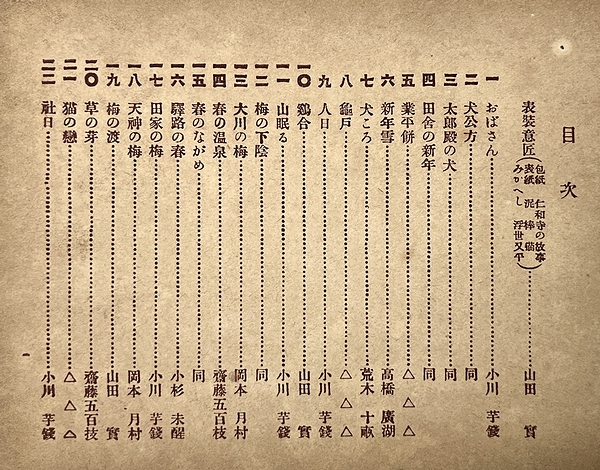 目次
表裝意匠(包紙 仁和寺の故事 表紙 泥棒猫 みかへし 浮世又平)……山田 實
一 おばさん……小川 芋錢
二 犬公方……同
三 太郎殿の犬……同
四 田舍の新年……同
五 業平併……△△△
六 新年雪……高橋 廣湖
七 犬ころ……荒木 十畝
八 龜戸……△△△
九 人日……小川 芋錢
一〇 鷄合……山田 實
一一 山眠る……小川 芋錢
一二 梅の下陰……同
一三 大川の梅……岡本 月村
一四 春の温泉……齋藤五百枝
一五 春のながめ……同
一六 驛路の春……小杉 未醒
一七 田家の梅……小川 芋錢
一八 天神の梅……岡本 月村
一九 梅の渡……山田 實
二〇 草の芽……齋藤五百枝
二一 猫の戀……△△△
二二 社日……小川 芋錢